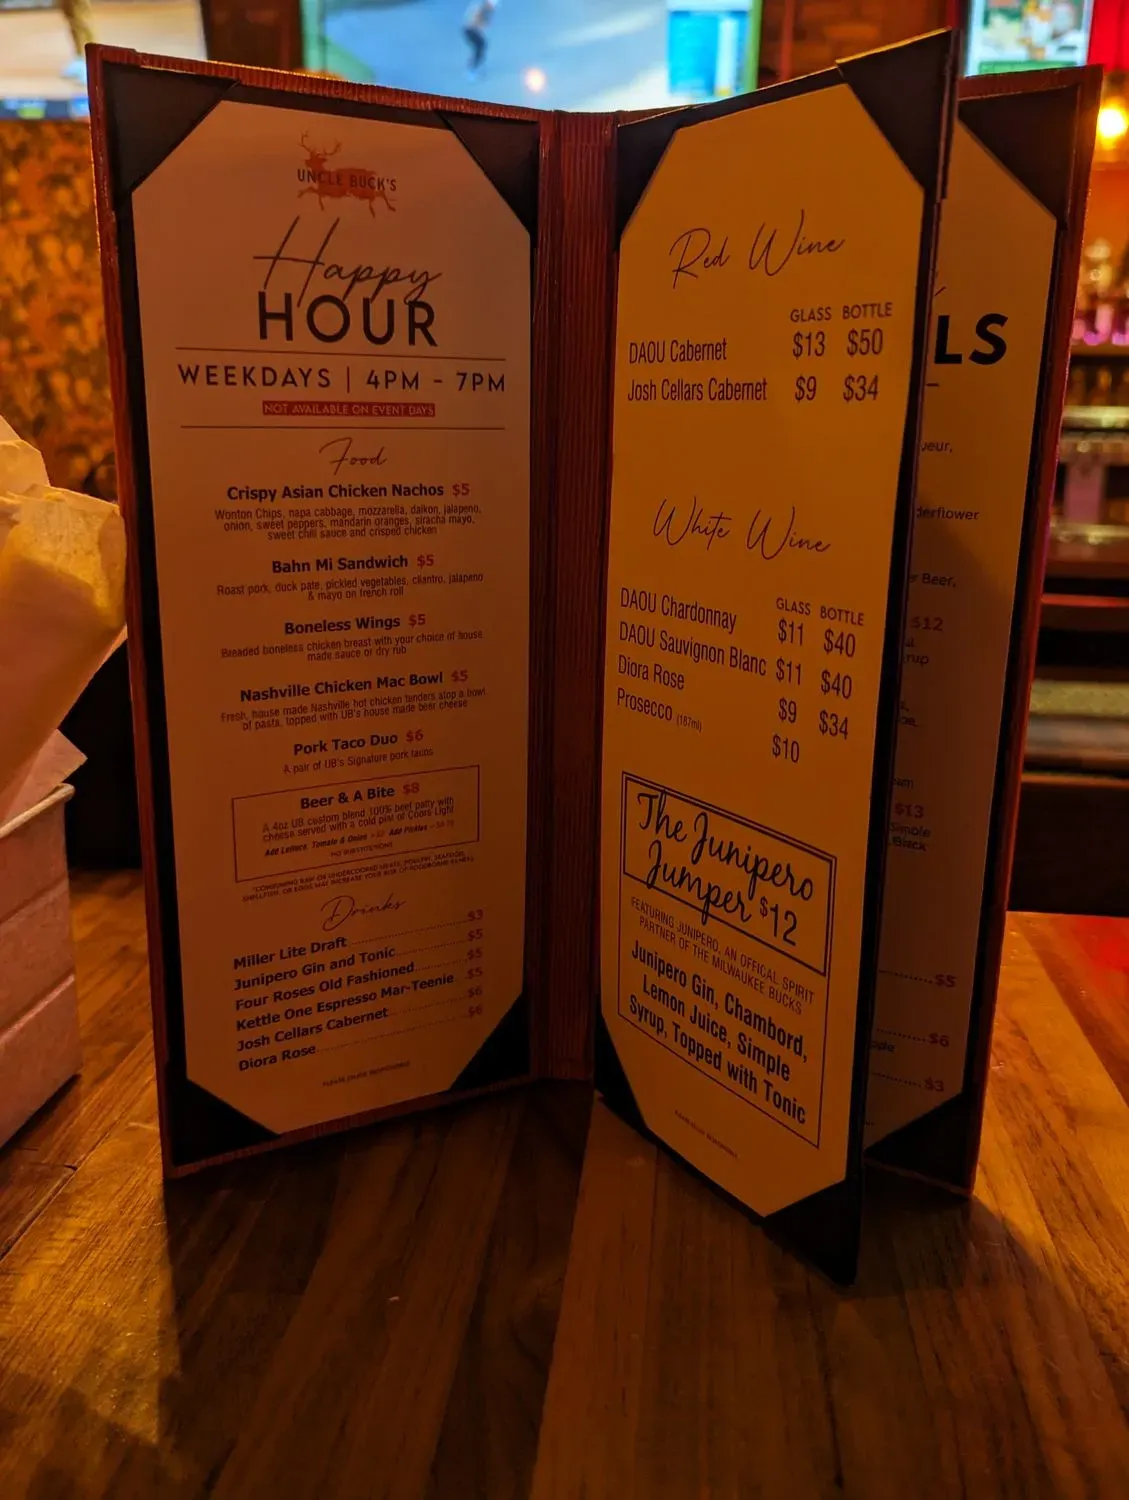 UNCLE BUCK'S
Happy
HOUR
WEEKDAYS | 4PM - 7PM
NOT AVAILABLE ON EVENT DAYS
Food
Crispy Asian Chicken Nachos $5
Wonton Chips, napa cabbage, mozzarella, daikon, jalapeno,
onion, sweet peppers, mandarin oranges, siracha mayo,
sweet chili sauce and crisped chicken
Bahn Mi Sandwich $5
Roast pork, duck pate, pickled vegetables, cilantro, jalapeno
& mayo on french roll
Boneless Wings $5
Breaded boneless chicken breast with your choice of house
made sauce or dry rub
Nashville Chicken Mac Bowl $5
Fresh, house made Nashville hot chicken tenders atop a bowl
of pasta, topped with UB's house made beer cheese
Pork Taco Duo $6
A pair of UB's Signature pork tacos
Beer & A Bite $8
A 4oz UB custom blend 100% beef patty with
cheese served with a cold pint of Coors Light
Add Lettuce, Tomato & Onion Add Pickles
NO SUBSTITUTIONS
*CONSUMING RAW OR UNDERCOOKED MEATS, POULTRY, SEAFOOD,
SHELLFISH, OR EGGS MAY INCREASE YOUR RISK OF FOODBORNE ILLNESS
Drinks
Miller Lite Draft $3
Junipero Gin and Tonic $5
Four Roses Old Fashioned $5
Kettle One Espresso Mar-Teenie $5
Josh Cellars Cabernet $6
Diora Rose $6
PLEASE DRINK RESPONSIBLY
Red Wine
GLASS BOTTLE
DAOU Cabernet $13 $50
Josh Cellars Cabernet $9 $34
White Wine
GLASS BOTTLE
DAOU Chardonnay $11 $40
DAOU Sauvignon Blanc $11 $40
Diora Rose $9 $34
Prosecco (187ml) $10
The Junipero
Jumper $12
FEATURING JUNIPERO, AN OFFICAL SPIRIT
PARTNER OF THE MILWAUKEE BUCKS
Junipero Gin, Chambord,
Lemon Juice, Simple
Syrup, Topped with Tonic
PLEASE DRINK RESPONSIBLY
LS
eur,
derflower
r Beer,
$12
rup
$13
Simple
Black
$5
$6
$3